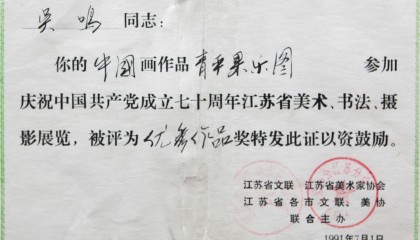 吴鸣 同志：
你的中國画作品青苹果乐图 参加
庆祝中国共产党成立七十周年江苏省美术、书法、摄
影展览，被评为优秀作品奖特发此证以资鼓励。
江苏省文联 江苏省美术家协会
江苏省各市文联、美协
联合主办
1991年7月1日